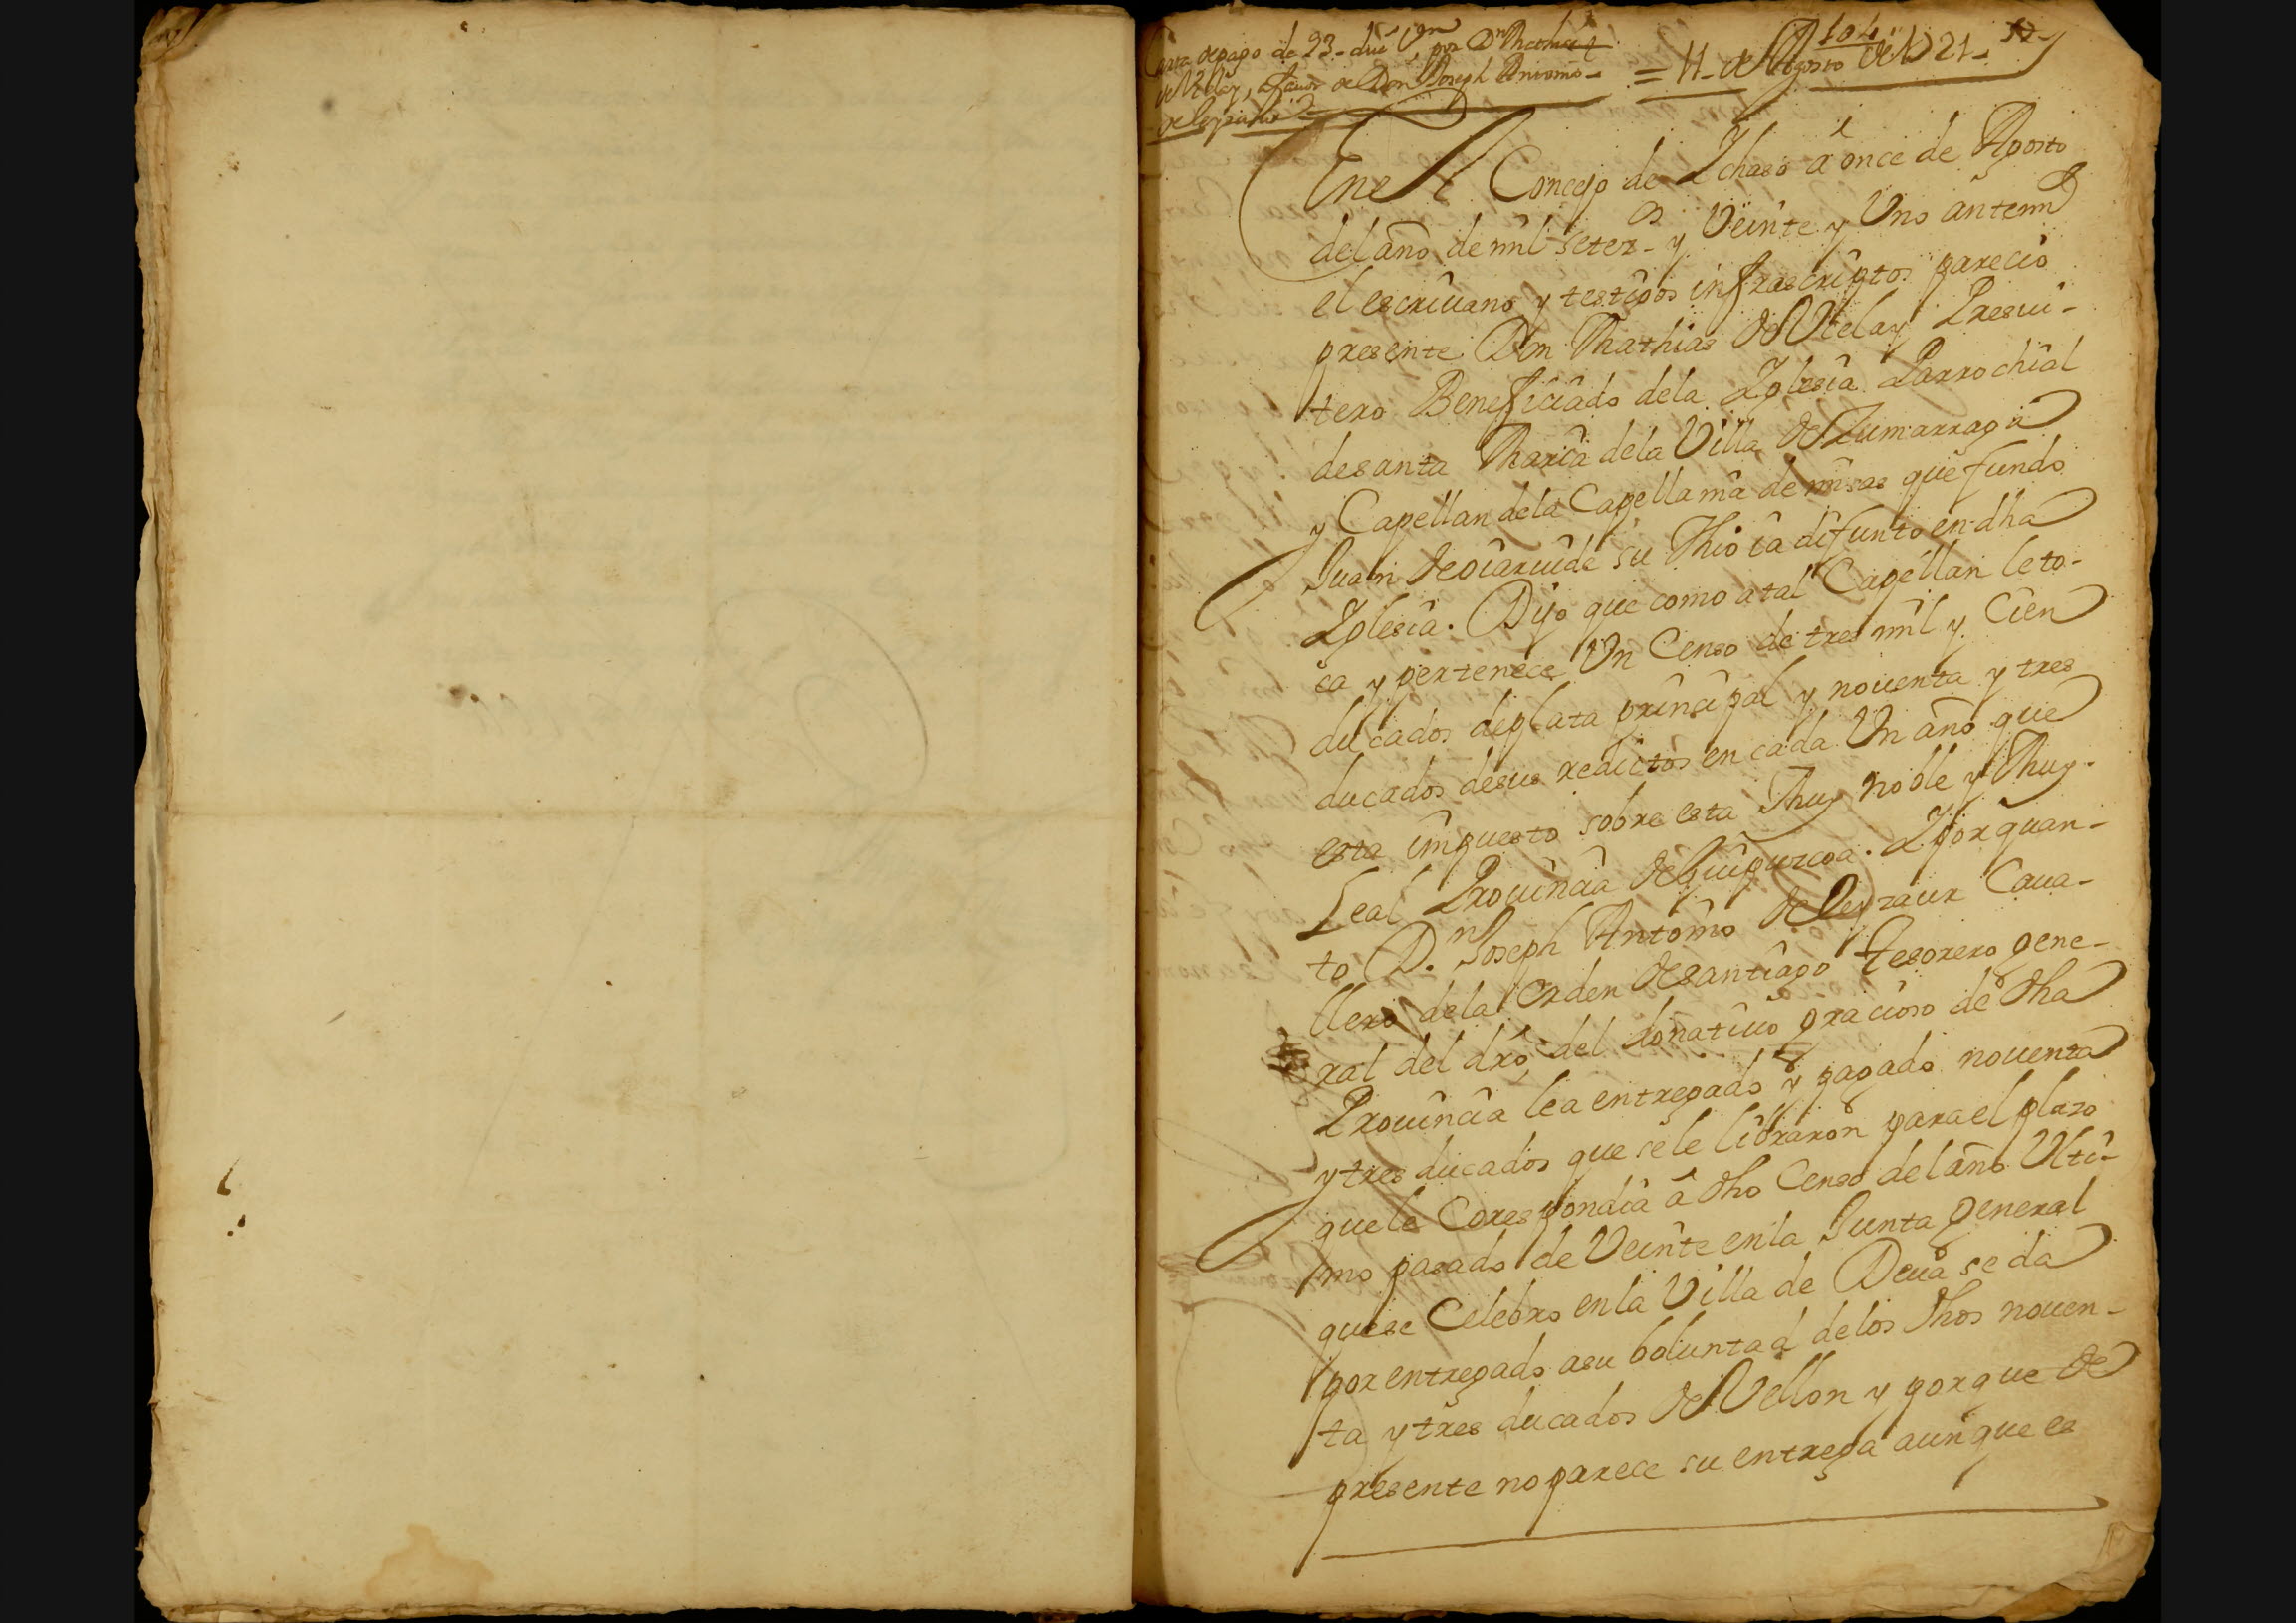 Carta de pago de 93 duc.s Vn por Dn Mathias
de Vicelay, a favor de Don Joseph Antonio
de Leyzaur
= 11 de Agosto de 1721
104
En el Concejo de Ichaso â once de Agosto
del año de mil setez.os y Veinte y Uno antemi
el escriuano y testigos infrascriptos parecio
presente Don Mathias de Vicelay Presui-
tero Beneficiado dela Iglesia Parrochial
desanta Maria dela Villa de Zumarraga
y Capellan dela Capellania de misas que fundo
Juan de oiaruide su Thio ia difunto en dha
Iglesia. Dijo que como atal Capellan leto-
ca y pertenece Un Censo de tres mil y Cien
ducados deplata principal y nouenta y tres
ducados desus redictos en cada Un año que
esta impuesto sobre esta Muy noble y Muy
Leal Prouincia de Guipuzcoa. Y por quan-
to D.n Joseph Antonio de Leyzaur Caua-
llero dela Orden desantiago Tesorero gene-
ral del dro del donatiuo gracioso de dha
Prouincia lea entregado y pagado nouenta
ytres ducados que sele libraron para el plazo
quele Corespondia â dho Censo del año Ulti-
mo pasado de Veinte enla Junta general
quese Celebro enla Villa de Deua se da
por entregado asu boluntad delos dhos nouen-
ta ytres ducados de Vellon y porque de
presente noparece su entrega aunque es